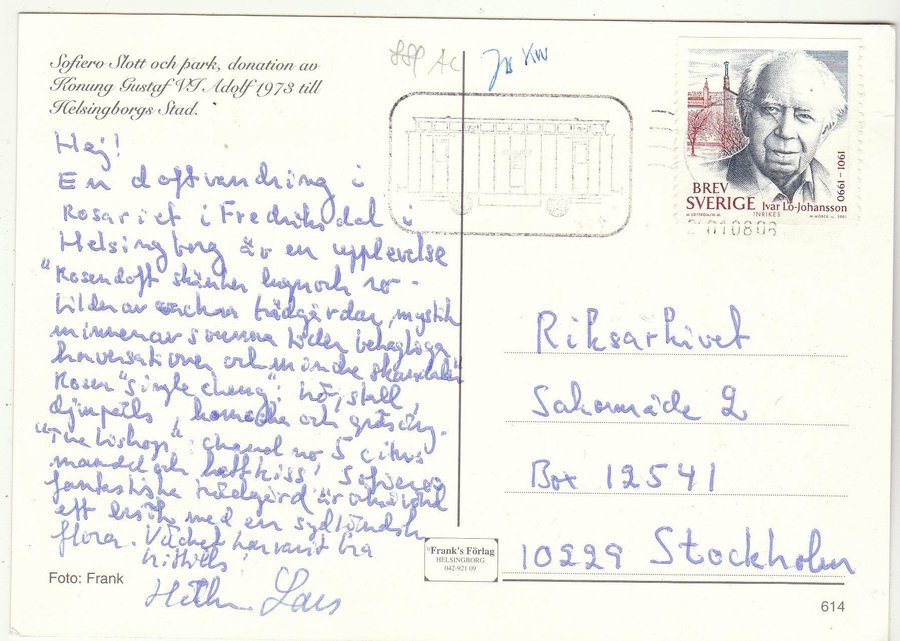 Sofiero Slott och park, donation av
Konung Gustaf VI Adolf 1973 till
Helsingborgs Stad.
Hej!
En doftvandring i
Rosariet i Fredriksdal i
Helsingborg är en upplevelse
"Rosendoft skänker lugn och ro -
bilder av vackra trädgårdar, mystik
minnen av svunna tider behagliga
konversationer och mindre skandaler"
Rosen "Single cheng": hö, stall,
komocka och gräsäng.
"The bishop": chanel no 5 citrus
mandel och kattkiss! Sofieros
fantastiska trädgård är också värd
ett besök med en sydländsk
flora. Vädret har varit bra
hittills!
Lars
Foto: Frank
Frank's Förlag
HELSINGBORG
042-921 09
BREV
SVERIGE
Ivar Lo-Johansson
INRIKES
1901-1990
010806
Riksarkivet
Sakområde 2
Box 12541
10229 Stockholm
614